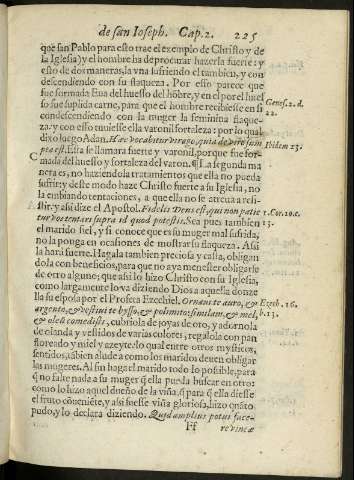 de san Ioseph. Cap. 2. 225
que san Pablo para esto trae el exemplo de Christo y de
la Iglesia) y el hombre ha de procurar hazerla fuerte: y
esto de dos maneras, la vna sufriendo el tambien, y con
descendiendo con su flaqueza. Por esso parece que
fue formada Eua del huesso del hõbre, y en el por el hues
so fue suplida carne, para que el hombre recibiesse en si
condescendiendo con la muger la feminina flaque-
za: y con esso tuuiesse ella varonil fortaleza: por lo qual
dixo luego Adan. Hæc vocabitur virago, quia de viro sum
pta est. Esta se llamara fuerte y varonil, porque fue for-
mada del huesso y fortaleza del varon. ¶ La segunda ma
nera es, no haziendola tratamientos que ella no pueda
sufrir: y deste modo haze Christo fuerte a su Iglesia, no
la embiando tentaciones, a que ella no se atreua a resi-
stir: y assi dize el Apostol. Fidelis Deus est, qui non patie
tur vos tentari supra id quod potestis. Sea pues tambien
el marido fiel, y si conoce que es su muger mal sufrida,
no la ponga en ocasiones de mostrar su flaqueza. Assi
la hará fuerte. Hagala tambien preciosa y casta, obligan
dola con beneficios, para que no aya menester obligarse
de otro alguno: que assi lo hizo Christo con su Iglesia,
como largamente lo va diziendo Dios a aquella donze
lla su esposa por el Profeta Ezechiel. Ornaui te auro, &
argento, & vestiui te bysso, & polimito: similam, & mel,
& oleũ comedisti, cubriola de joyas de oro, y adornola
de olanda y vestidos de varias colores, regalola con pan
floreado y miel y azeyte: lo qual entre otros mysticos
sentidos, tãbien alude a como los maridos deuen obligar
las mugeres. Al fin haga el marido todo lo posible, para
q̃ no falte nada a su muger q̃ ella pueda buscar en otro:
como lo hizo aquel dueño de la viña, q̃ para q̃ ella diesse
el fruto cõueniẽte, y assi fuesse viña gloriosa, hizo quãto
pudo, y lo declara diziendo. Quid amplius potui face-
Ff re vineæ
Genes. 2. d.
22.
Ibidem 23.
1. Cor. 10. c.
13.
Ezech. 16.
b. 13.
C